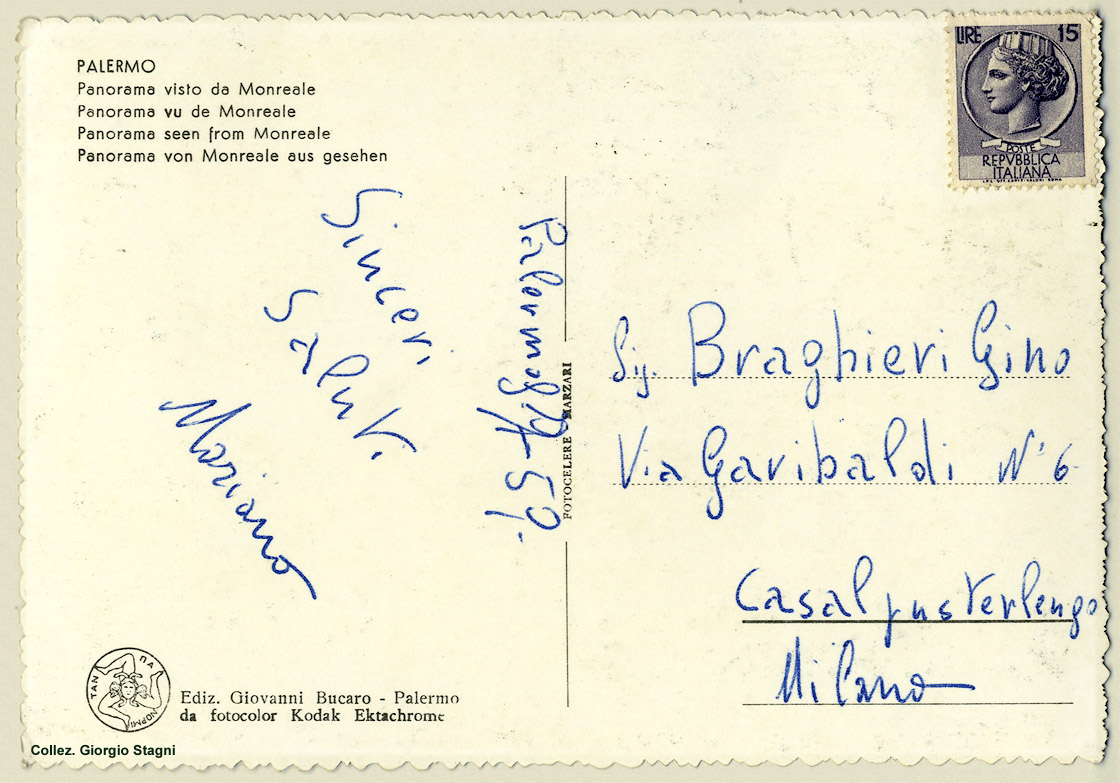 PALERMO
Panorama visto da Monreale
Panorama vu de Monreale
Panorama seen from Monreale
Panorama von Monreale aus gesehen
Sinceri
Saluti
Mariano
Palermo
59.
FOTOCELERE - MARZARI
LIRE 15
POSTE
REPVBBLICA
ITALIANA
Sig. Braghieri Gino
Via Garibaldi N° 6
Casalpusterlengo
Milano
Ediz. Giovanni Bucaro - Palermo
da fotocolor Kodak Ektachrome
Collez. Giorgio Stagni